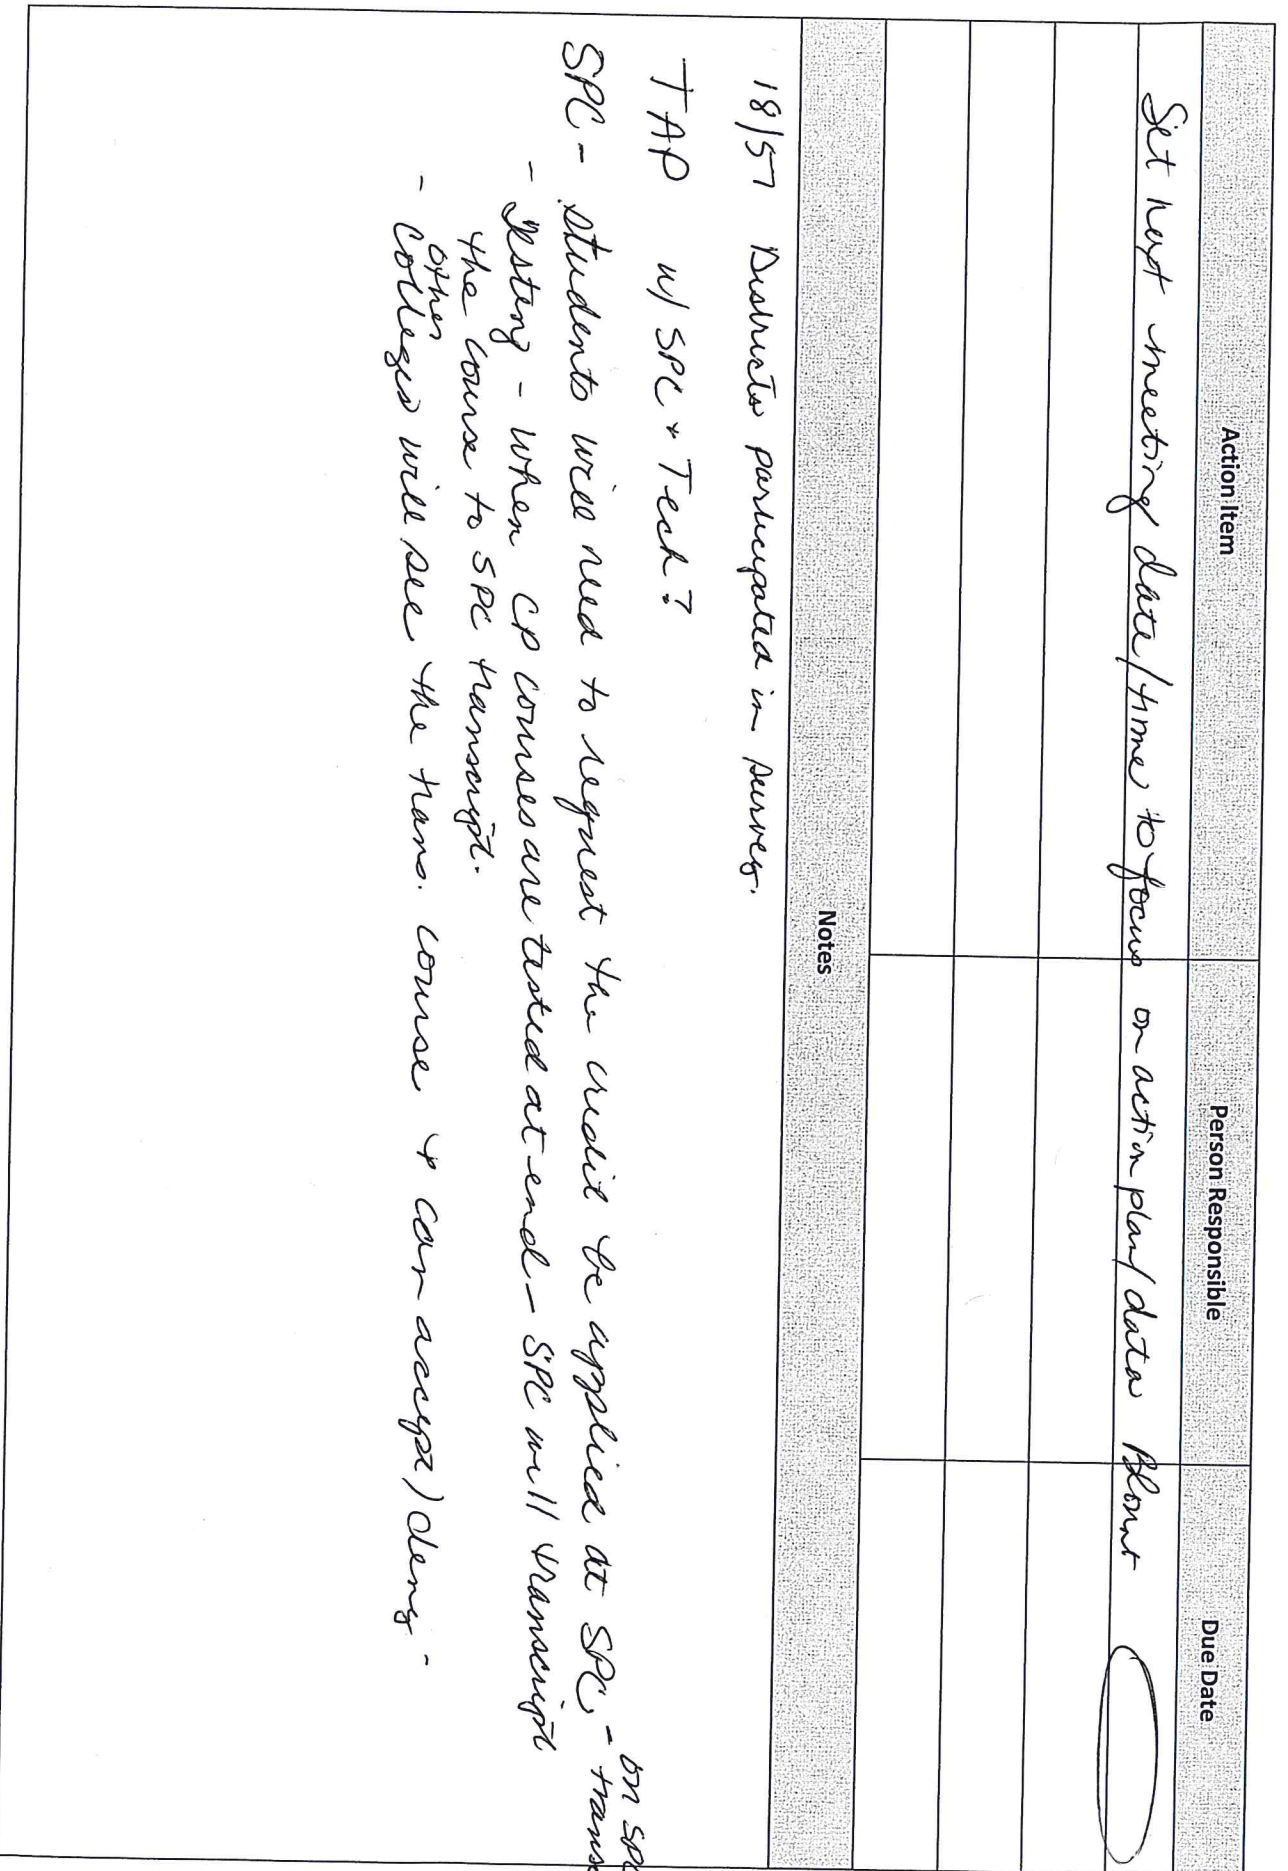 Action Item Person Responsible Due Date
Set next meeting date/time to focus on action plan/data Blount
Notes
18/57 Districts participated in survey.
TAP w/ SPC + Tech?
on SPC
SPC - students will need to request the credit be applied at SPC, - transc
- Testing - when CP courses are tested at end - SPC will transcript
the course to SPC transcript.
other
- Colleges will see the trans. course + can accept/deny -